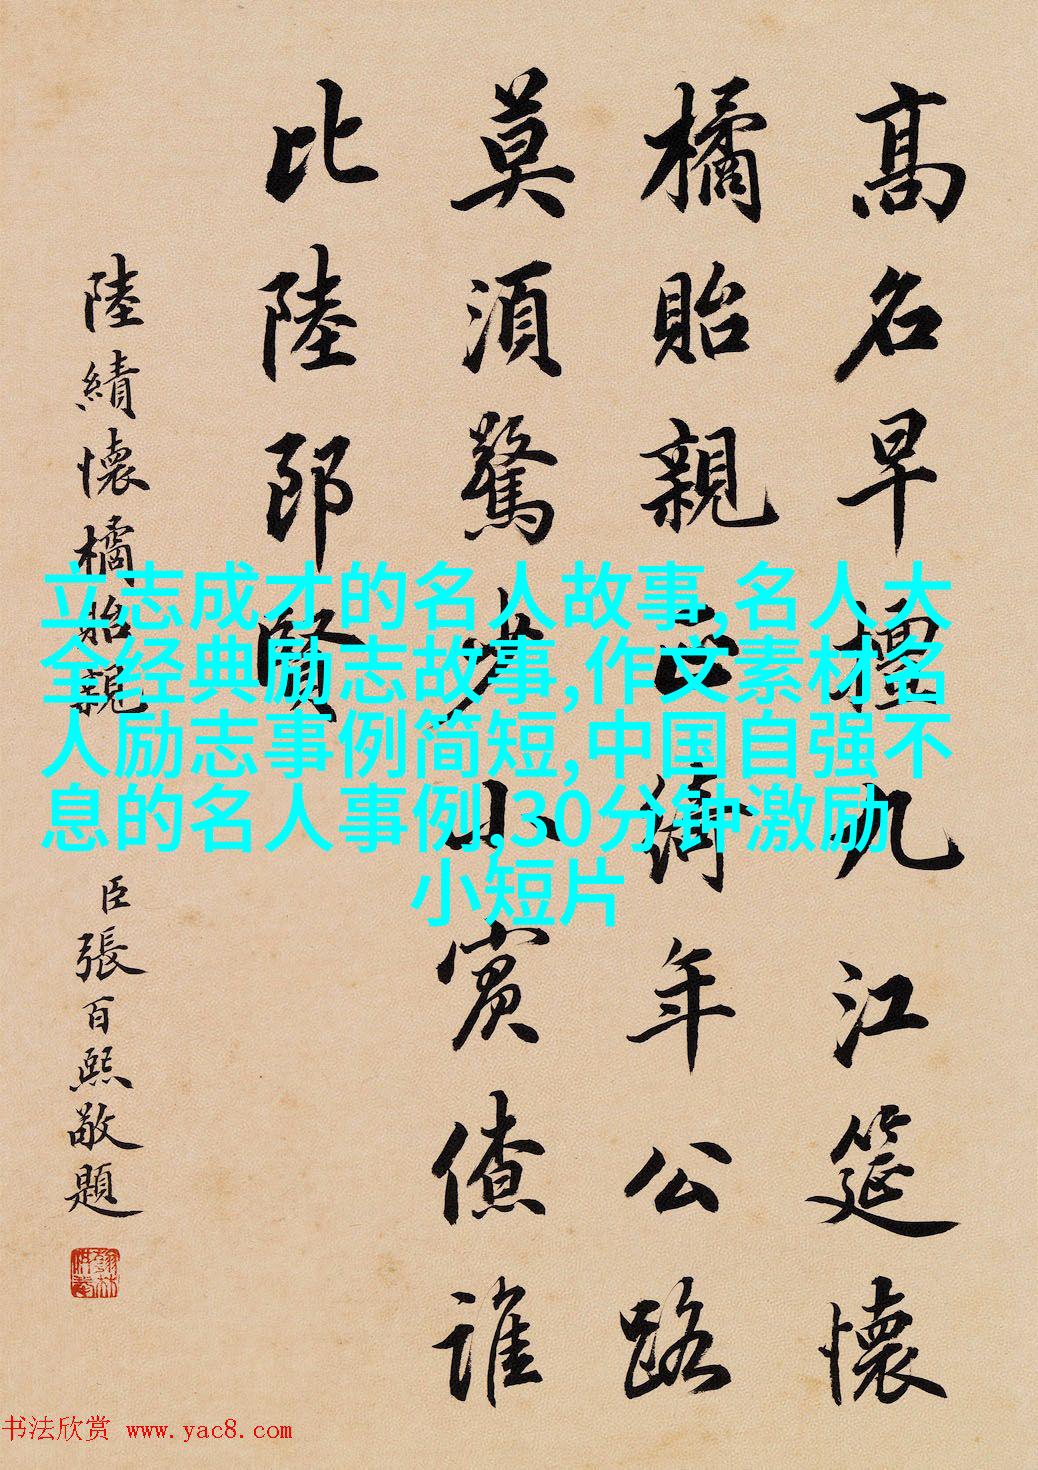 髙名早擅九江筵懷
橘貽親正綺年公路
莫須驚少小賓僚誰
比陸郎賢
陸績懷橘貽親
臣張百熙敬題
立志成才的名人故事,名人大
全经典励志故事,作文素材名
人励志事例简短,中国自强不
息的名人事例,30分钟激励
小短片
书法欣赏 www.yac8.com